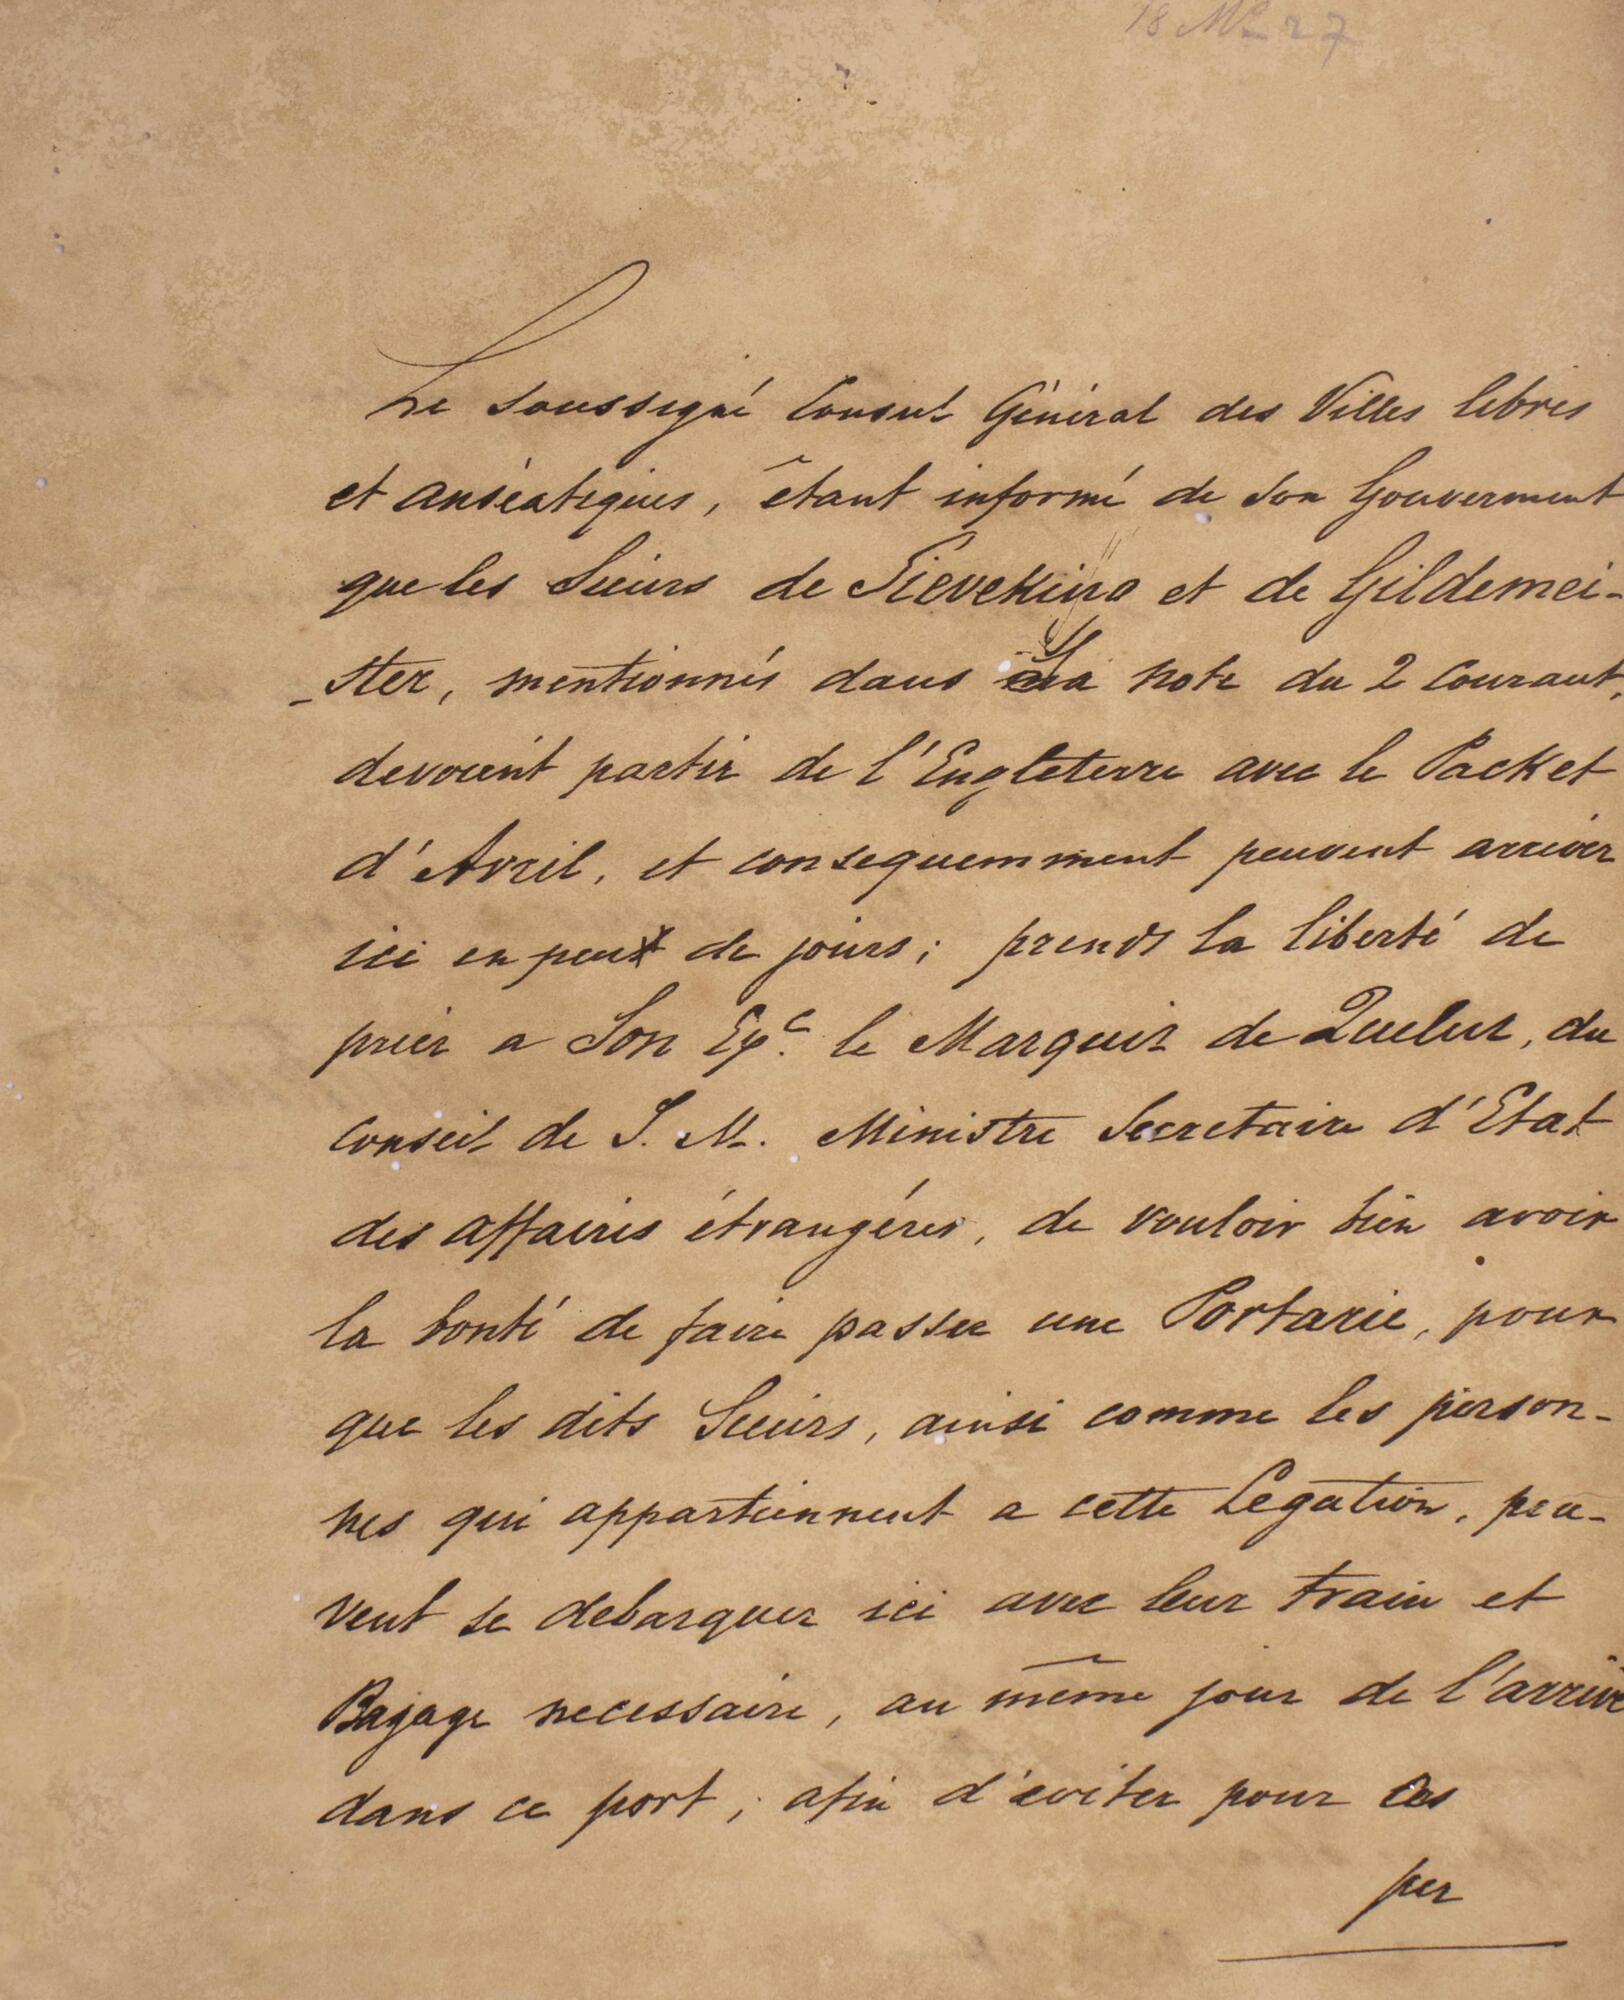 Le soussigné Consul Général des Villes libres
et anséatiques, êtant informé de son Gouverment
que les Sieurs de Sieveking et de Gildemei-
-ster, mentionnés dans Sa note du 2 courant,
devoient partir de l'Engleterre avec le Packet
d'Avril, et consequemment peuvent arriver
ici en peu de jours; prends la liberté de
prier a Son Exc. le Marquis de Queluz, du
Conseil de S. M. Ministre Secretaire d'Etat
des affaires étrangéres, de vouloir bien avoir
la bonté de faire passer une Portarie, pour
que les dits Sieurs, ainsi comme les person-
nes qui appartiennent a cette Legation, peu-
vent se debarquer ici avec leur train et
Bagage necessaire, au même jour de l'arrivé
dans ce port, afin d'eviter pour ces
per